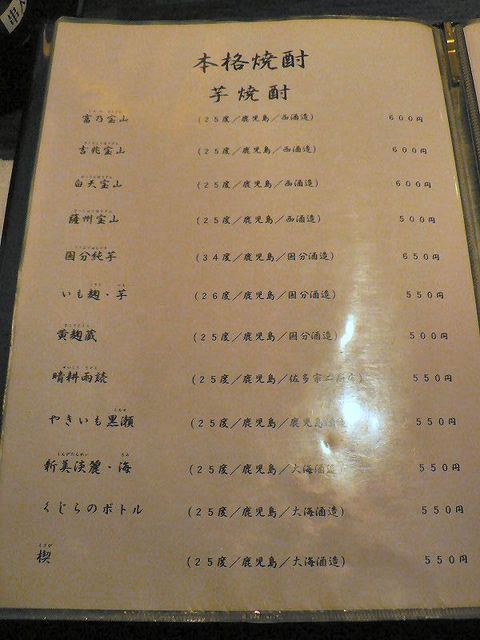 本格焼酎
芋焼酎
富乃宝山 (25度/鹿児島/西酒造) 600円
吉兆宝山 (25度/鹿児島/西酒造) 600円
白天宝山 (25度/鹿児島/西酒造) 600円
薩州宝山 (25度/鹿児島/西酒造) 500円
国分純芋 (34度/鹿児島/国分酒造) 650円
いも麹・芋 (26度/鹿児島/国分酒造) 550円
黄麹蔵 (25度/鹿児島/国分酒造) 500円
晴耕雨読 (25度/鹿児島/佐多宗二商店) 550円
やきいも黒瀬 (25度/鹿児島/鹿児島酒造) 550円
新美淡麗・海 (25度/鹿児島/大海酒造) 550円
くじらのボトル (25度/鹿児島/大海酒造) 550円
楔 (25度/鹿児島/大海酒造) 550円